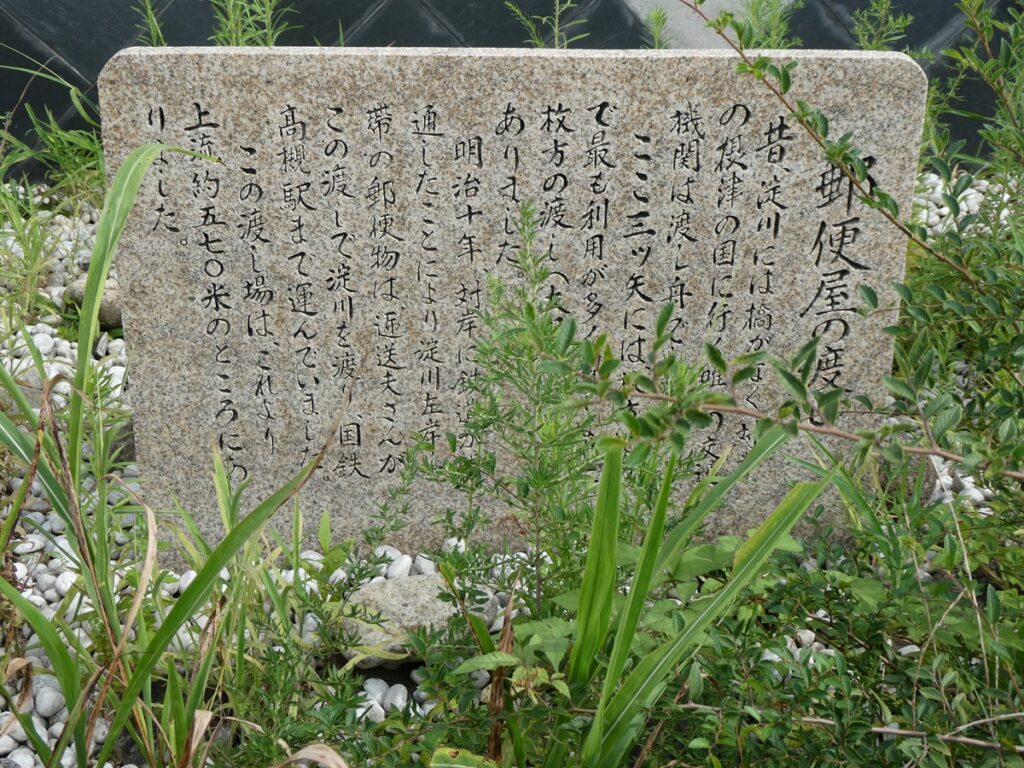 郵便屋の渡
昔、淀川には橋がなく、
の摂津の国に行く唯一の交
機関は渡し舟で
ここ三ッ矢には
で最も利用が多く
枚方の渡し(大
ありました。
明治十年、対岸に鉄道が
通したことにより淀川左岸
帯の郵便物は逓送夫さんが
この渡しで淀川を渡り、国鉄
高槻駅まで運んでいました。
この渡し場は、これより
上流約五七〇米のところにあ
りました。